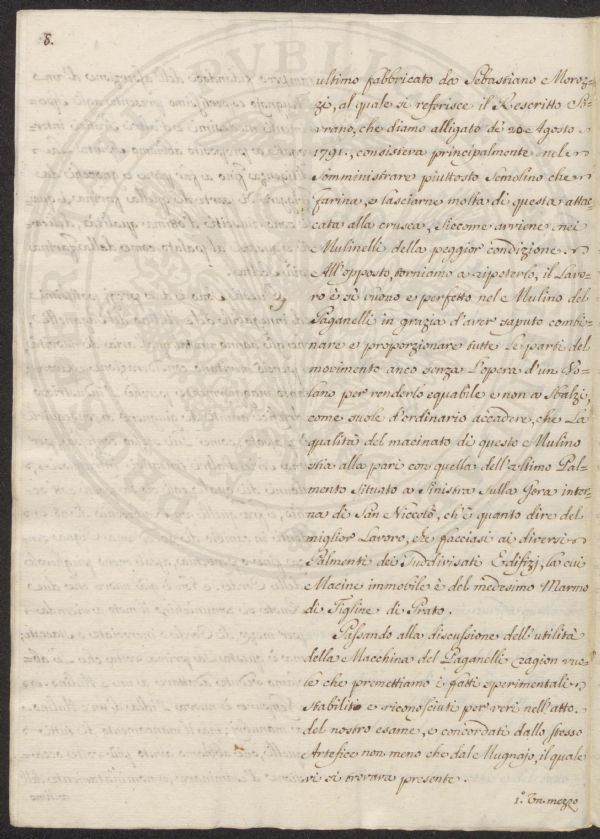 8.
ultimo fabbricato da Sebastiano Moroz-
zi, al quale si referisce il Rescritto So-
vrano, che diamo alligato de' 20 Agosto
1791., consisteva principalmente nel
somministrare piuttosto Semolino che
farina, e lasciarne molta di questa attac-
cata alla crusca, siccome avviene nei
Mulinelli della peggior condizione.
All'opposto, torniamo a ripeterlo, il Lavo-
ro è sì buono e perfetto nel Mulino del
Paganelli in grazia d'aver saputo combi-
nare e proporzionare tutte le parti del
movimento anco senza l'opera d'un Vo-
lano per renderlo equabile e non a sbalzi,
come suole d'ordinario accadere, che la
qualità del macinato di questo Mulino
stia alla pari con quella dell'ultimo Pal-
mento situato a sinistra sulla Gora inter-
na di San Niccolò, ch'è quanto dire del
miglior Lavoro, che facciasi ai diversi
Palmenti dei suddivisati Edifizj, la cui
Macine immobile è del medesimo Marmo
di Figline di Prato.
Passando alla discussione dell'utilità
della Macchina del Paganelli ragion vuo-
le che premettiamo i fatti sperimentali
stabiliti e riconosciuti per veri nell'atto
del nostro esame, e concordati dallo stesso
Artefice non meno che dal Mugnajo, il quale
vi si trovava presente.
1.° Un mezzo